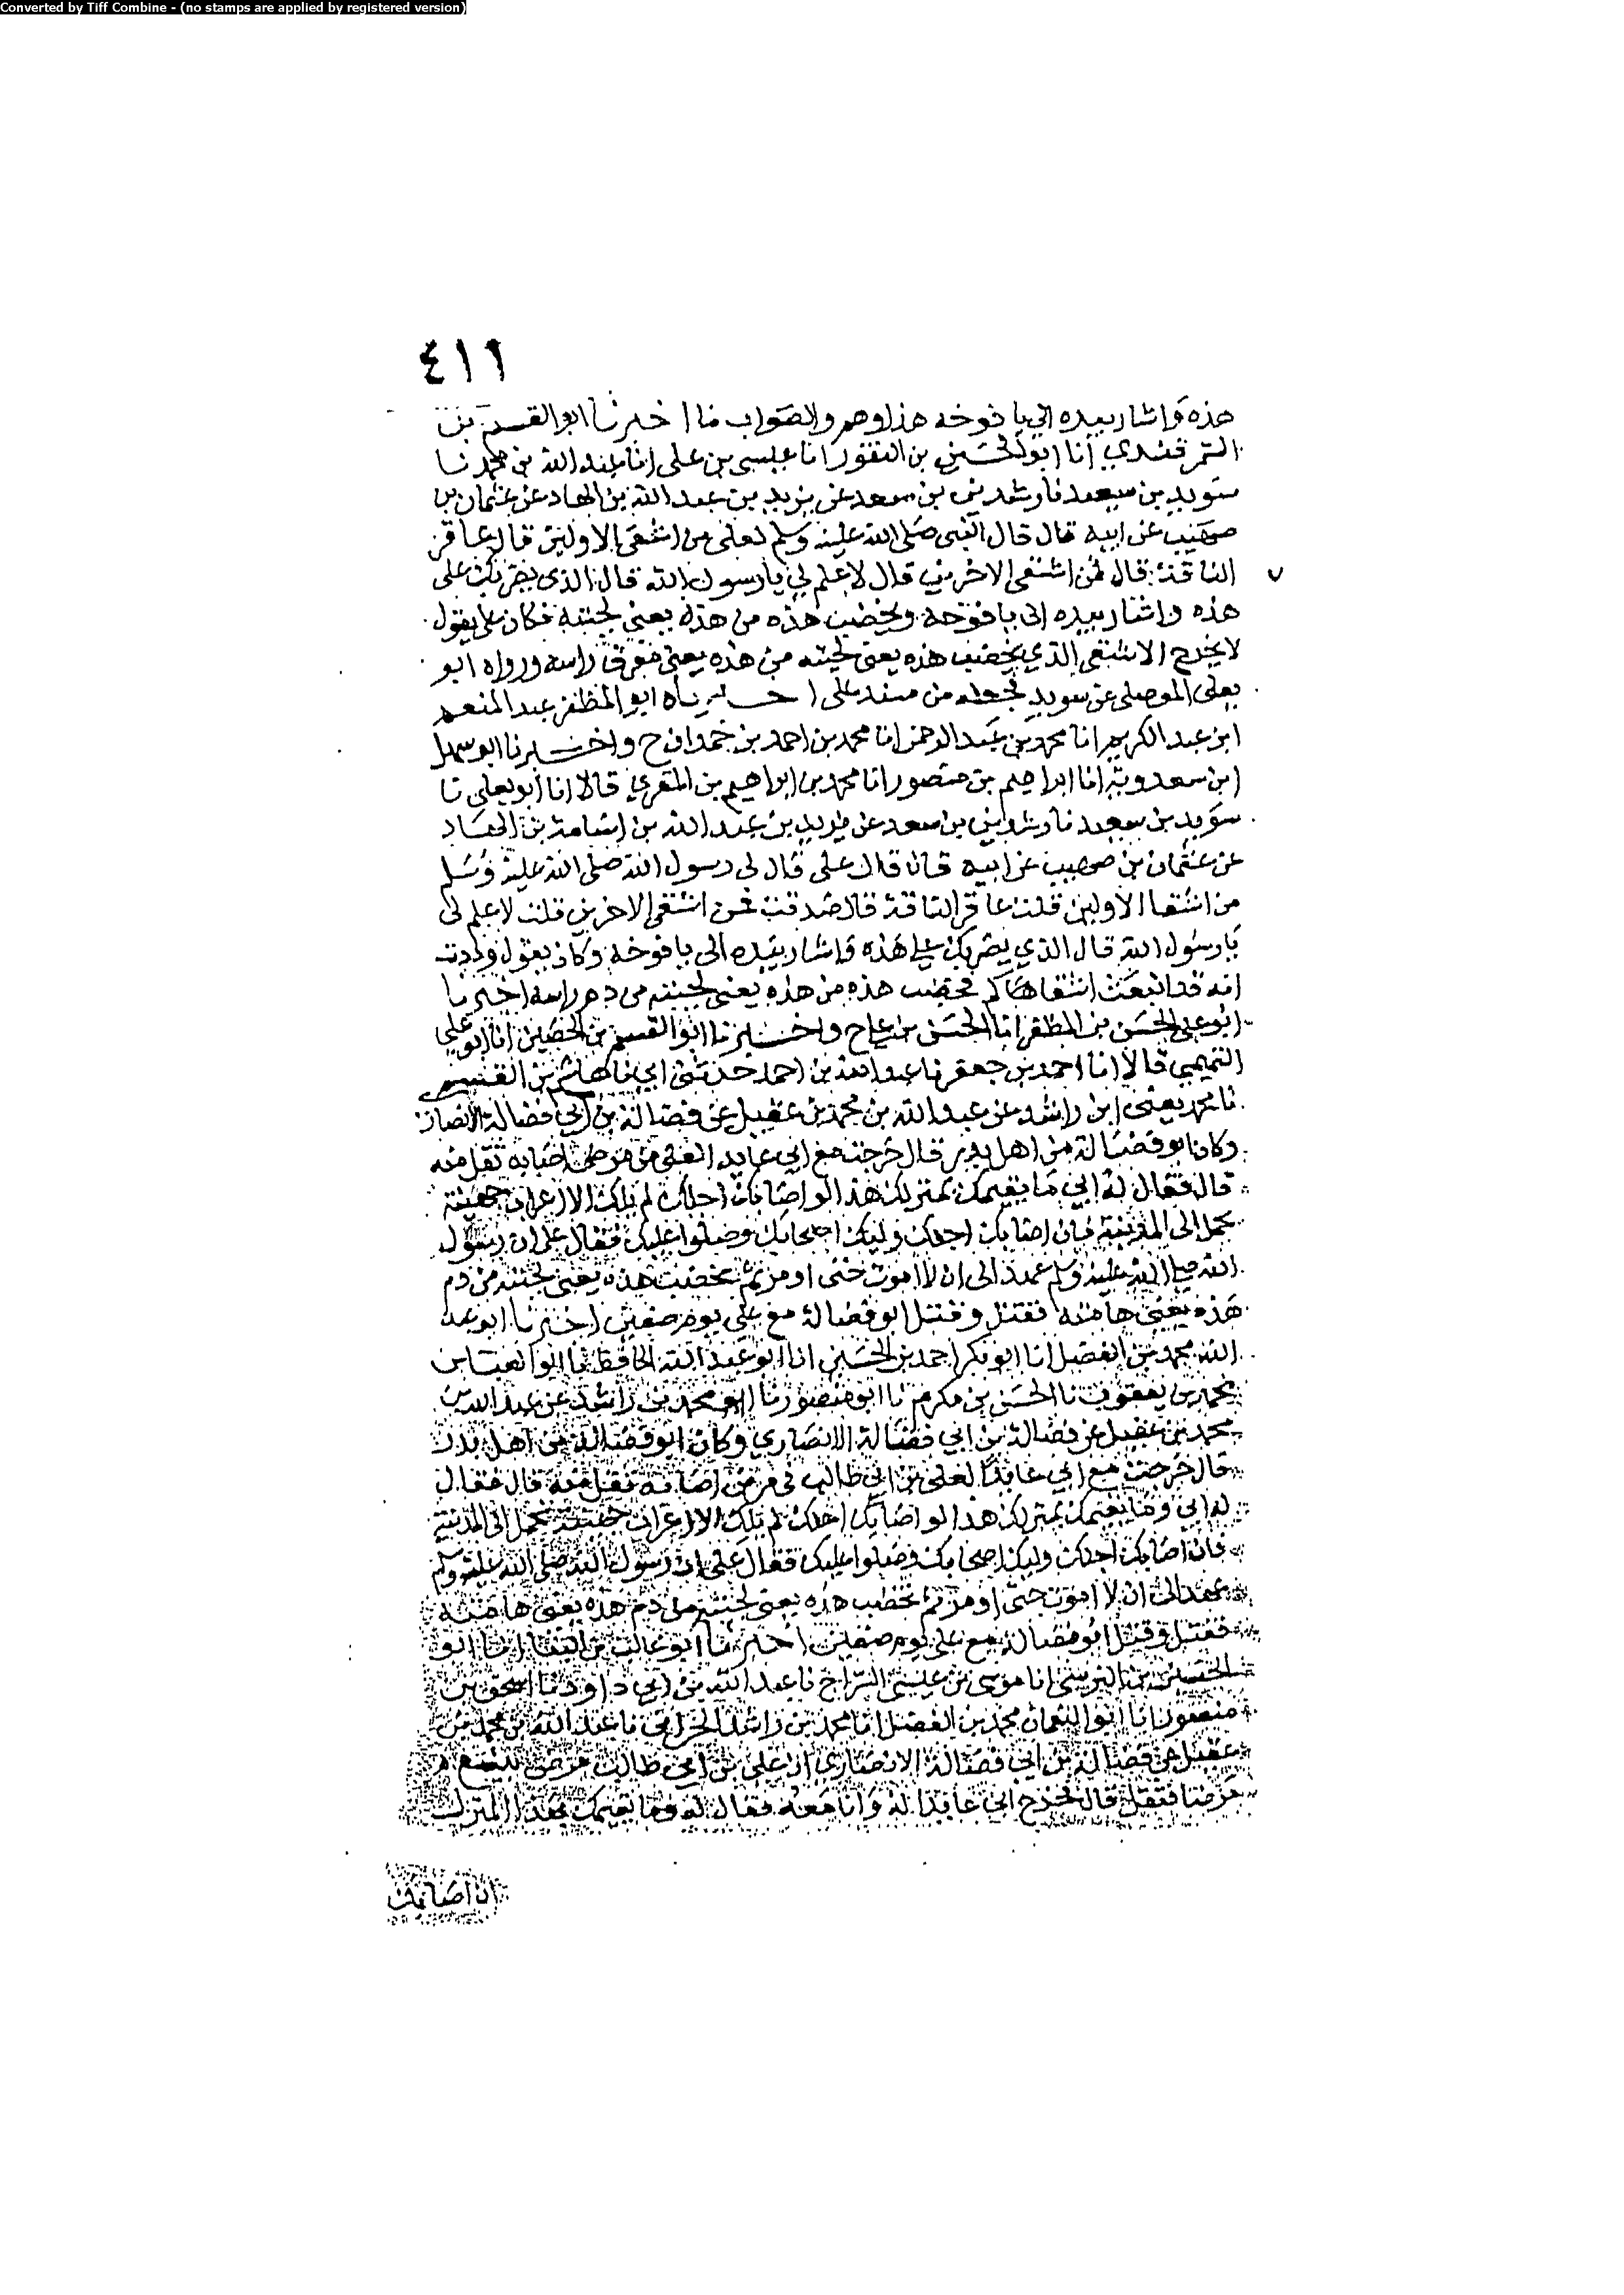 Converted by Tiff Combine - (no stamps are applied by registered version)
٤١١
هذه واشار بيده الى يافوخه هذا وهم والصواب ما اخبرنا ابو القسم بن
السمرقندي انا ابو الحسين بن النقور انا عيسى بن علي انا عبد الله بن محمد نا
سويد بن سعيد نا رشدين بن سعد عن يزيد بن عبد الله بن الهاد عن عثمان بن
صهيب عن ابيه قال قال النبي صلى الله عليه وسلم لعلي من اشقى الاولين قال عاقر
الناقة قال فمن اشقى الاخرين قال لا علم لي يا رسول الله قال الذي يضربك على
هذه واشار بيده الى يافوخه ويخضب هذه من هذه يعني لحيته فكان علي يقول
لا يخرج الاشقى الذي يخضب هذه يعني لحيته من هذه يعني مفرق راسه ورواه ابو
يعلى الموصلي عن سويد فجعله من مسند علي اخبرناه ابو المظفر عبد المنعم
ابن عبد الكريم انا محمد بن عبد الرحمن انا محمد بن احمد بن حمدان ح واخبرنا ابو سهل
ابن سعدويه انا ابراهيم بن منصور انا محمد بن ابراهيم بن المقري قالا انا ابو يعلى نا
سويد بن سعيد نا رشدين بن سعد عن يزيد بن عبد الله بن اسامة بن الهاد
عن عثمان بن صهيب عن ابيه قال قال علي قال لي رسول الله صلى الله عليه وسلم
من اشقا الاولين قلت عاقر الناقة قال صدقت فمن اشقى الاخرين قلت لا علم لي
يا رسول الله قال الذي يضربك على هذه واشار بيده الى يافوخه وكان يقول وددت
انه قد انبعث اشقاكم فخضب هذه من هذه يعني لحيته من دم راسه اخبرنا
ابو علي الحسن بن المظفر انا الحسن بن علي ح واخبرنا ابو القسم بن الحصين انا ابو علي
التميمي قالا انا احمد بن جعفر نا عبد الله بن احمد حدثني ابي نا هاشم بن القسم
نا محمد يعني ابن راشد عن عبد الله بن محمد بن عقيل عن فضالة بن ابي فضالة الانصاري
وكان ابو فضالة من اهل بدر قال خرجت مع ابي عايدا لعلي من مرض اصابه ثقل منه
قال فقال له ابي ما يقيمك بمنزلك هذا لو اصابك اجلك لم يلك الا اعراب جهينة
تحمل الى المدينة فان اصابك اجلك وليك اصحابك وصلوا عليك فقال علي ان رسول
الله صلى الله عليه وسلم عهد الي ان لا اموت حتى اومر ثم تخضب هذه يعني لحيته من دم
هذه يعني هامته فقتل وقتل ابو فضالة مع علي يوم صفين اخبرنا ابو عبد
الله محمد بن الفضل انا ابو بكر احمد بن الحسين انا ابو عبد الله الحافظ نا ابو العباس
محمد بن يعقوب نا الحسن بن مكرم نا ابو منصور نا محمد بن راشد عن عبد الله بن
محمد بن عقيل عن فضالة بن ابي فضالة الانصاري وكان ابو فضالة من اهل بدر
قال خرجت مع ابي عايدا لعلي بن ابي طالب في مرض اصابه ثقل منه قال فقال
له ابي وما يقيمك بمنزلك هذا لو اصابك اجلك لم يلك الا اعراب جهينة تحمل الى المدينة
فان اصابك اجلك وليك اصحابك وصلوا عليك فقال علي ان رسول الله صلى الله عليه وسلم
عهد الي ان لا اموت حتى اومر ثم تخضب هذه يعني لحيته من دم هذه يعني هامته
فقتل وقتل ابو فضالة مع علي يوم صفين اخبرنا ابو غالب بن البنا انا ابو
الحسين بن النرسي انا موسى بن عيسى السراج نا عبد الله بن ابي داود نا اسحق بن
منصور نا ابو النعمان محمد بن الفضل نا محمد بن راشد الخزاعي نا عبد الله بن محمد بن
عقيل عن فضالة بن ابي فضالة الانصاري ان علي بن ابي طالب مرض بينبع
مرضا فثقل قال فخرج ابي عايدا له وانا معه فقال له وما يقيمك بهذا المنزل
ان اصابك